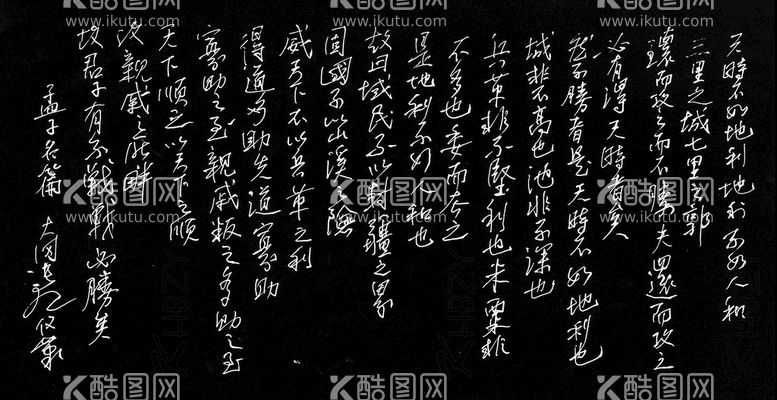 天時不如地利地利不如人和
三里之城七里之郭
環而攻之而不勝夫環而攻之
必有得天時者矣
然不勝者是天時不如地利也
城非不高也池非不深也
兵革非不堅利也米粟非
不多也委而去之
是地利不如人和也
故曰域民不以封疆之界
固國不以山溪之險
威天下不以兵革之利
得道多助失道寡助
寡助之至親戚叛之多助之至
天下順之以天下之順
攻親戚之所畔
故君子有不戰戰必勝矣
孟子名篇
酷图网
www.ikutu.com